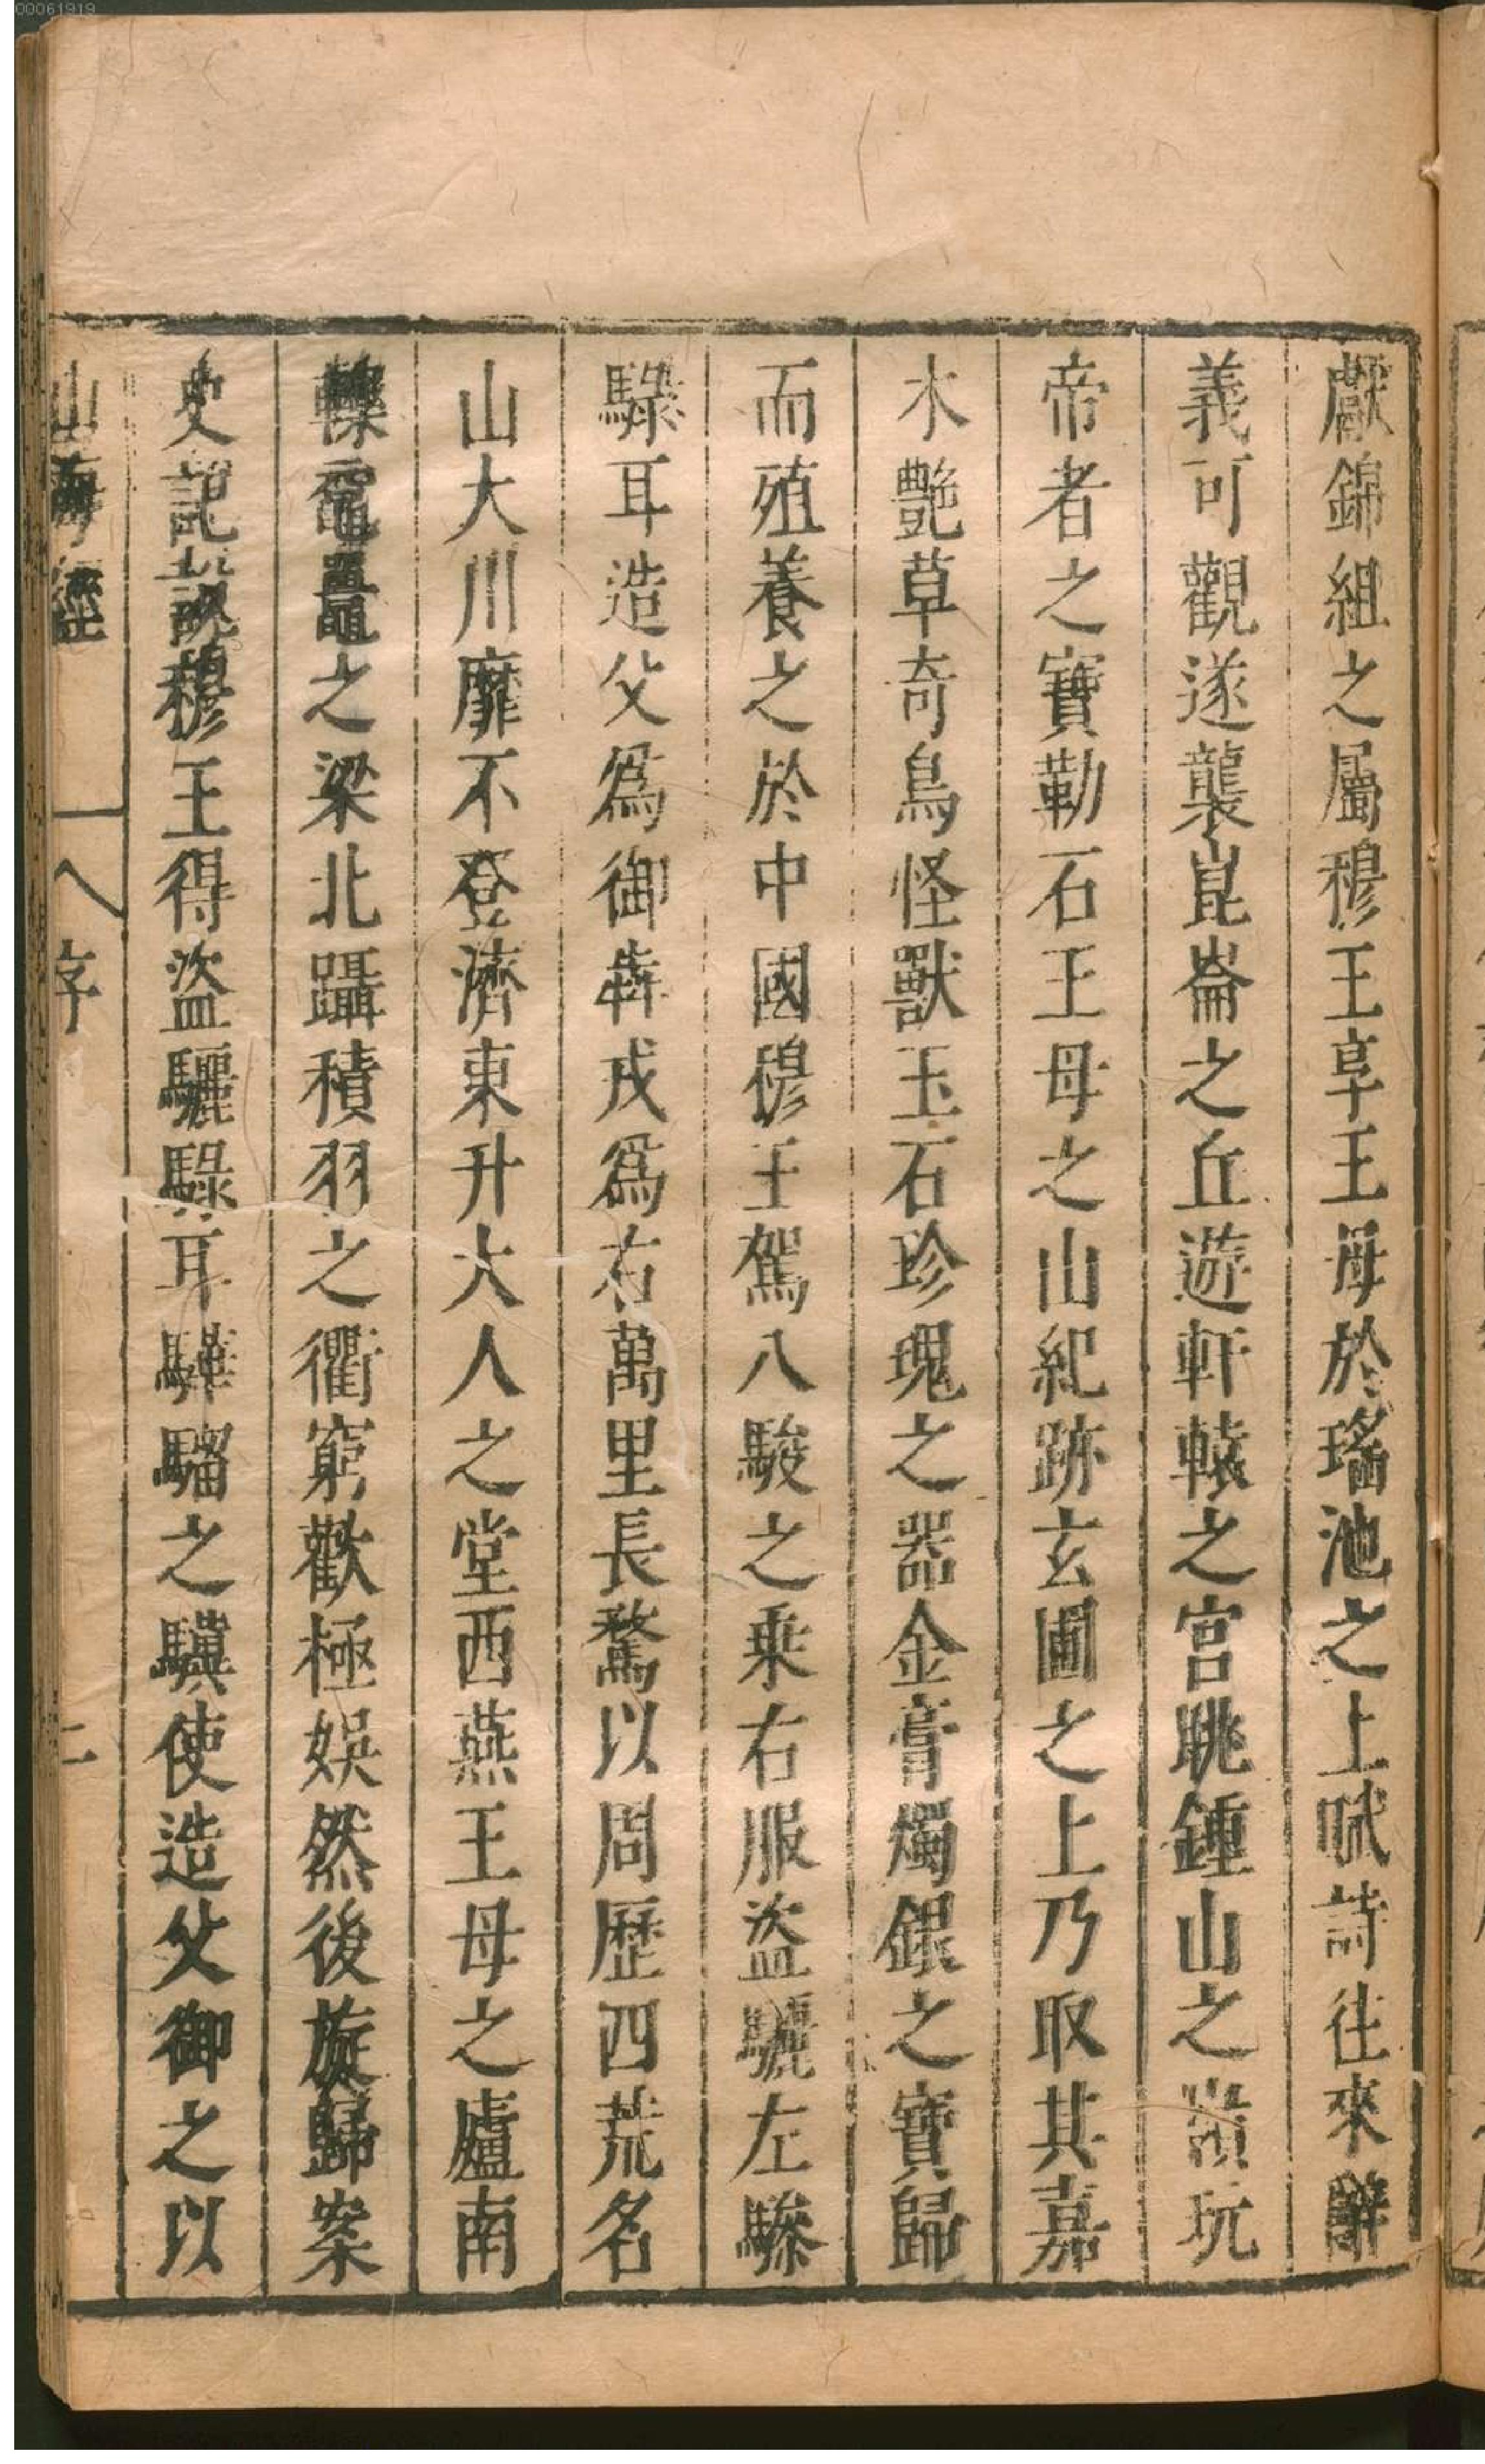 00061919
獻錦組之屬穆王享王母於瑤池之上賦詩往來辭
義可觀遂襲崑崙之丘遊軒轅之宮眺鍾山之嶺玩
帝者之寶勒石王母之山紀跡玄圃之上乃取其嘉
木艷草奇鳥怪獸玉石珍瑰之器金膏燭銀之寶歸
而殖養之於中國穆王駕八駿之乗右服盜驪左驂
騄耳造父爲御犇戎爲右萬里長騖以周歷四荒名
山大川靡不登濟東升大人之堂西燕王母之廬南
轢黿鼉之梁北躡積羽之衢窮歡極娛然後旋歸案
史記說穆王得盜驪騄耳驊騮之驥使造父御之以
山海經 序 二